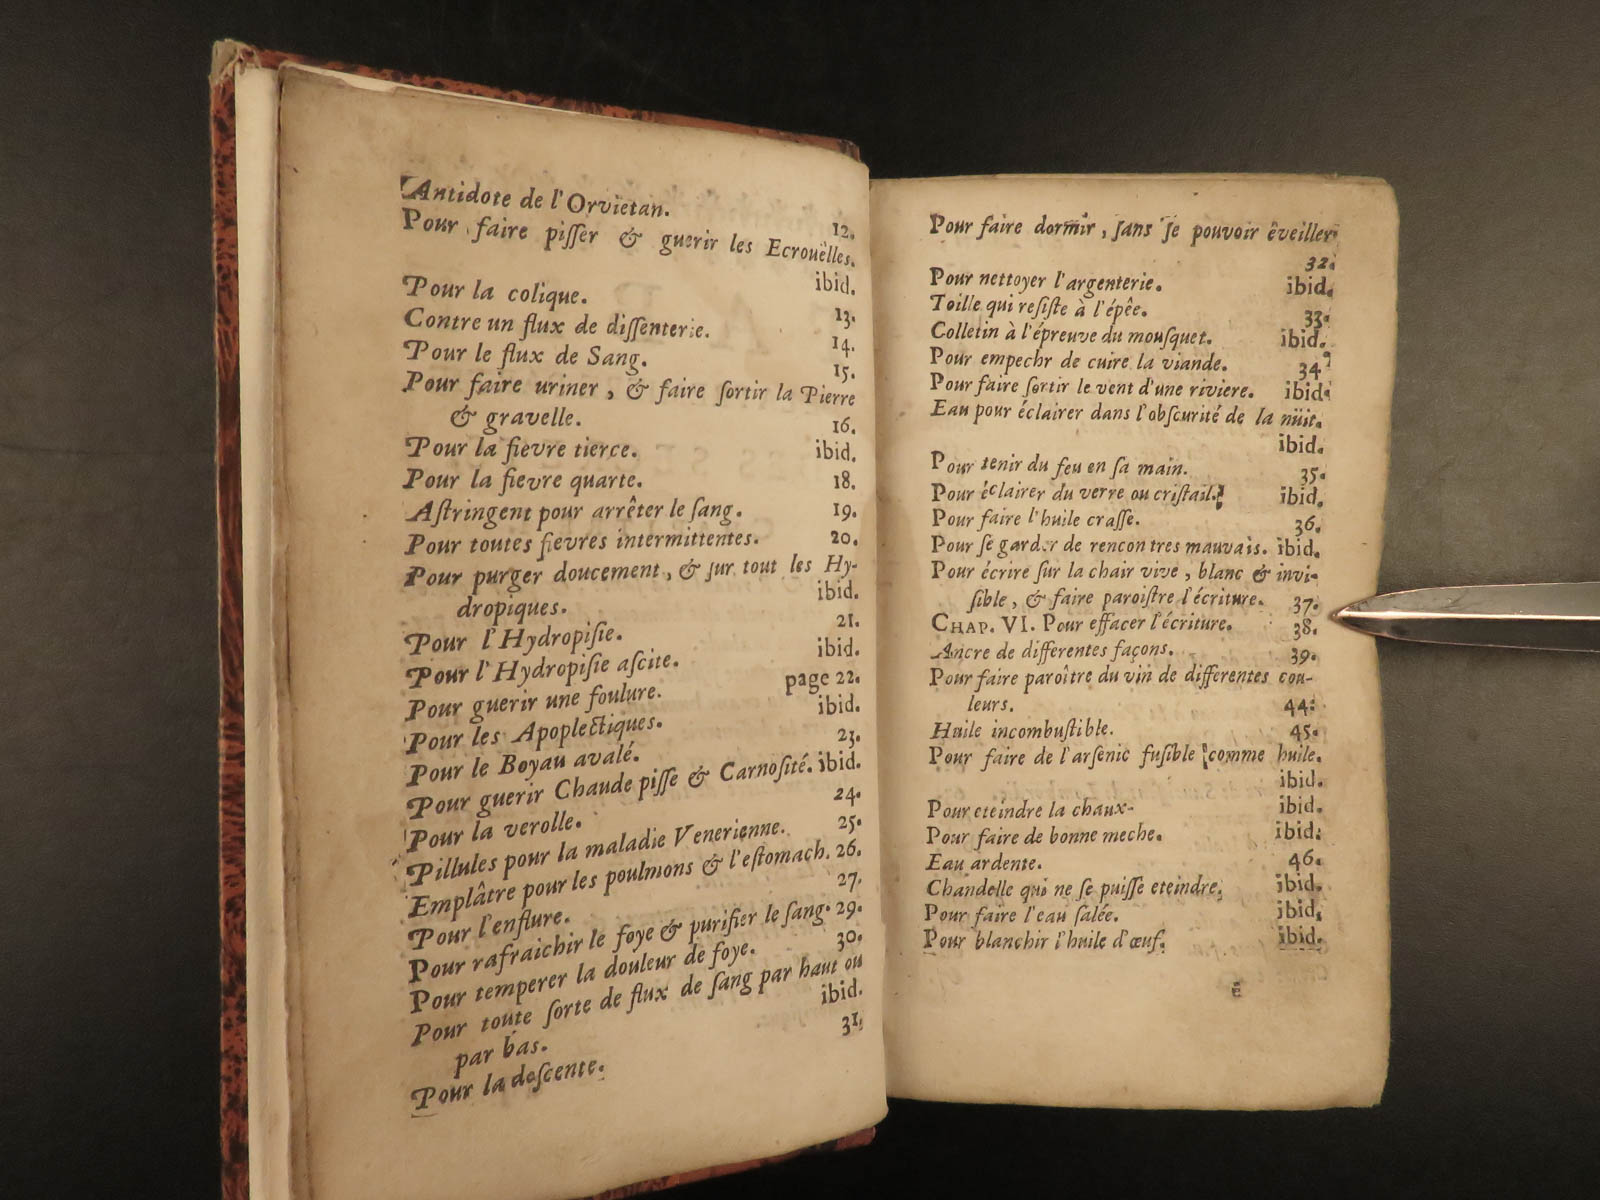 Antidote de l'Orvietan. 12.
Pour faire pisser & guerir les Ecrouëlles.
ibid.
Pour la colique. 13.
Contre un flux de dissenterie. 14.
Pour le flux de Sang. 15.
Pour faire uriner, & faire sortir la Pierre
& gravelle. 16.
Pour la fievre tierce. ibid.
Pour la fievre quarte. 18.
Astringent pour arrêter le sang. 19.
Pour toutes fievres intermittentes. 20.
Pour purger doucement, & sur tout les Hy-
dropiques. ibid.
Pour l'Hydropisie. 21.
Pour l'Hydropisie ascite. ibid.
Pour guerir une foulure. page 22.
Pour les Apoplectiques. ibid.
Pour le Boyau avalé. 23.
Pour guerir Chaude pisse & Carnosité. ibid.
Pour la verolle. 24.
Pillules pour la maladie Venerienne. 25.
Emplâtre pour les poulmons & l'estomach. 26.
Pour l'enflure. 27.
Pour rafraichir le foye & purifier le sang. 29.
Pour temperer la douleur de foye. 30.
Pour toute sorte de flux de sang par haut ou
par bas. ibid.
Pour la descente. 31.
Pour faire dormir, sans se pouvoir êveiller.
32.
Pour nettoyer l'argenterie. ibid.
Toille qui resiste à l'épêe. 33.
Colletin à l'épreuve du mousquet. ibid.
Pour empechr de cuire la viande. 34
Pour faire sortir le vent d'une riviere. ibid.
Eau pour éclairer dans l'obscurité de la nüit.
ibid.
Pour tenir du feu en sa main. 35.
Pour éclairer du verre ou cristail. ibid.
Pour faire l'huile crasse. 36.
Pour se garder de rencontres mauvais. ibid.
Pour écrire sur la chair vive, blanc & invi-
sible, & faire paroistre l'écriture. 37.
CHAP. VI. Pour effacer l'écriture. 38.
Ancre de differentes façons. 39.
Pour faire paroître du vin de differentes cou-
leurs. 44.
Huile incombustible. 45.
Pour faire de l'arsenic fusible comme huile.
ibid.
Pour eteindre la chaux- ibid.
Pour faire de bonne meche. ibid.
Eau ardente. 46.
Chandelle qui ne se puisse eteindre. ibid.
Pour faire l'eau salée. ibid.
Pour blanchir l'huile d'œuf. ibid.
ẽ